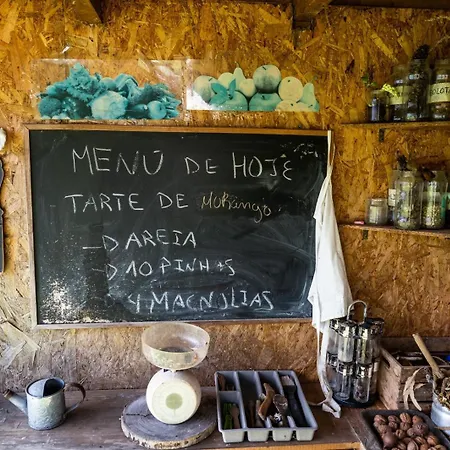 MENÚ DE HOJE
TARTE DE MORANGO
- D AREIA
- 10 PINHAS
- 4 MAGNOLIAS